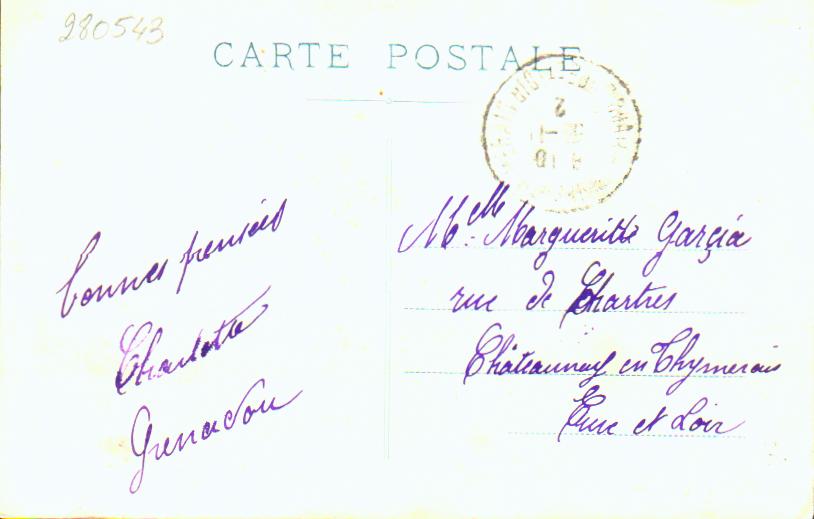 280543
CARTE POSTALE
bonnes pensées
Charlotte
Grenadou
Melle Margueritte Garçia
rue de Chartres
Châteauneuf en Thymerais
Eure et Loir